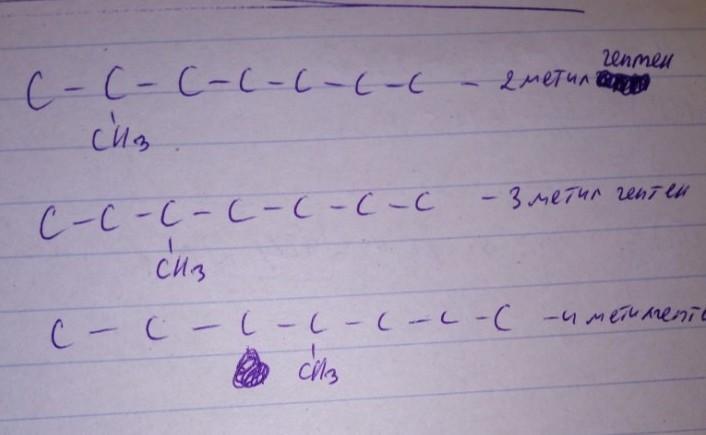 гептен
C - C - C - C - C - C - C - 2 метил
CH3
C - C - C - C - C - C - C - 3 метил гептен
CH3
C - C - C - C - C - C - C - 4 метилгепте
CH3